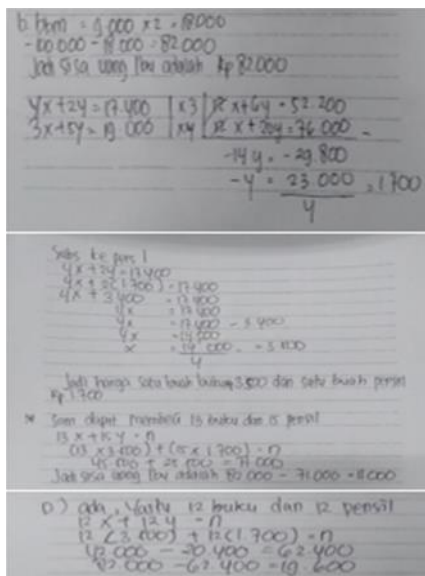 b. bbm = 9.000 x2 = 18000
-100.000 - 18.000 = 82000
Jadi sisa uang Ibu adalah Rp 82.000
4x+2y = 17.400 | x3 | 12x+6y = 52.200
3x+5y = 19.000 | x4 | 12x+20y = 76.000 -
-14y = -23.800
-y = 23.000 = 1.700
y
Subs ke pers 1
4x + 2y = 17.400
4x + 2(1.700) = 17.400
4x + 3.400 = 17.400
4x = 17.400
4x = 17.400 - 3.400
4x = 14.000
x = 14.000 = 3.500
4
Jadi harga satu buah buku 3.500 dan satu buah pensil
Rp 1.700
* Soni dapat membeli 13 buku dan 15 pensil
13 x + 15 y = n
(13 x 3.500) + (15 x 1.700) = n
45.500 + 25.500 = 71.000
Jadi sisa uang Ibu adalah 82.000 - 71.000 = 11.000
D) ada, yaitu 12 buku dan 12 pensil
12 x + 12 y = n
12 (3.500) + 12 (1.700) = n
42.000 - 20.400 = 62.400
82.000 - 62.400 = 19.600